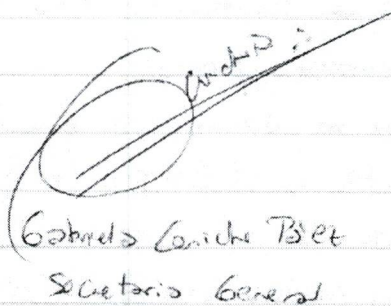 Gabriela Caniche Báez
Secretaria General